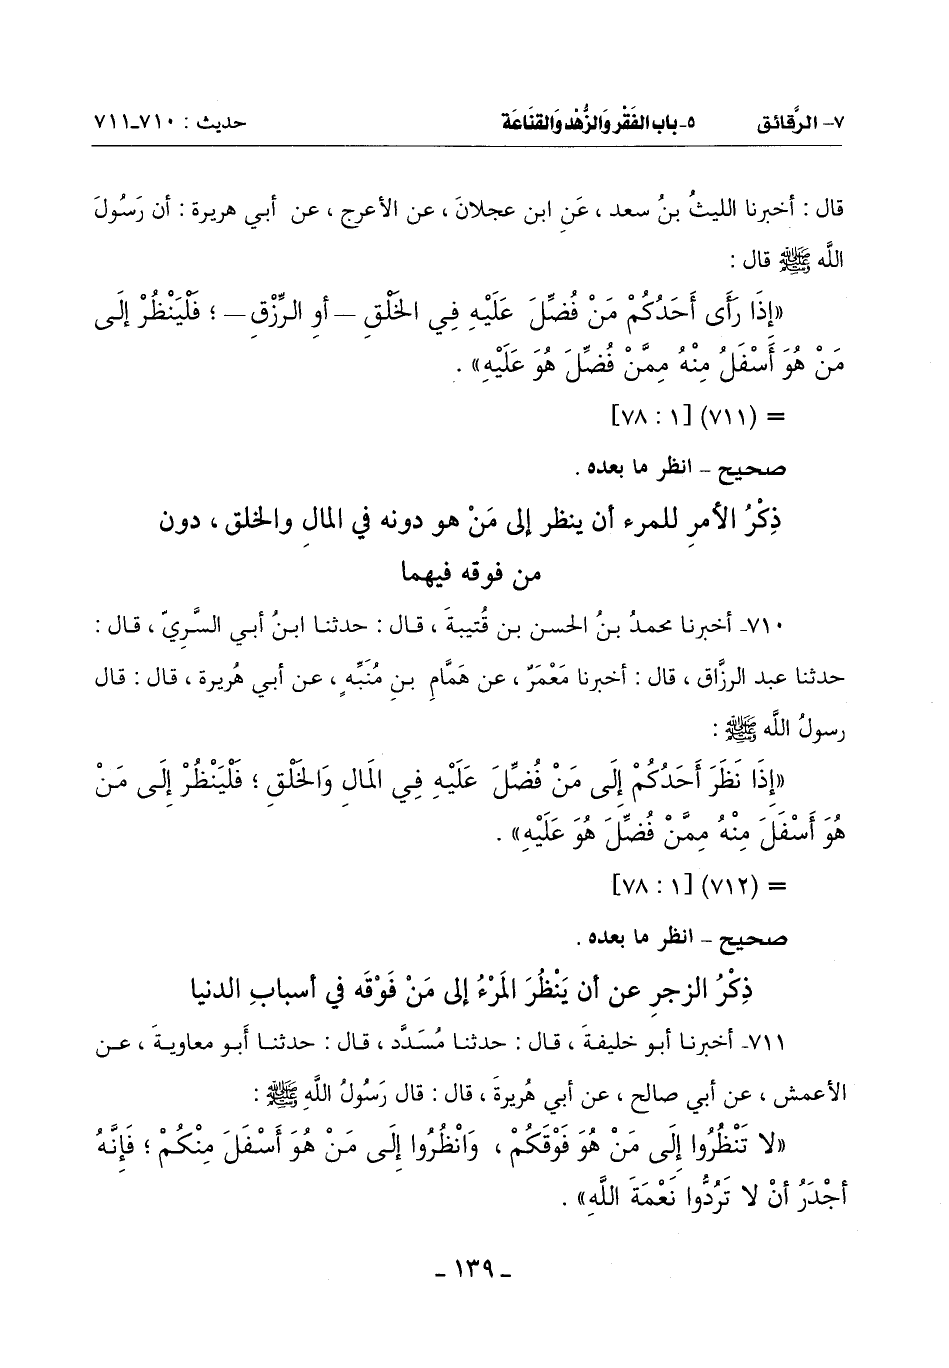 ٧- الرَّقائق ٥-باب الفَقْر وَالزُّهْد وَالقَنَاعَة حديث : ٧١٠-٧١١
قال : أخبرنا الليثُ بنُ سعد ، عَنِ ابن عجلانَ ، عن الأعرج ، عن أبي هريرة : أن رَسُولَ
اللَّه ﷺ قال :
«إِذَا رَأَى أَحَدُكُمْ مَنْ فُضِّلَ عَلَيْهِ فِي الخَلْقِ – أو الرِّزْقِ – ؛ فَلْيَنْظُرْ إِلَى
مَنْ هُوَ أَسْفَلُ مِنْهُ مِمَّنْ فُضِّلَ هُوَ عَلَيْهِ» .
= (٧١١) [١ : ٧٨]
صحيح – انظر ما بعده .
ذِكْرُ الأمرِ للمرء أن ينظر إلى مَنْ هو دونه في المالِ والخلق ، دون
من فوقه فيهما
٧١٠- أخبرنا محمدُ بنُ الحسن بن قُتيبةَ ، قال : حدثنا ابنُ أبي السَّرِيّ ، قال :
حدثنا عبد الرزَّاق ، قال : أخبرنا مَعْمَرٌ ، عن هَمَّامِ بنِ مُنَبِّهٍ ، عن أبي هُريرة ، قال : قال
رسولُ اللَّه ﷺ :
«إِذَا نَظَرَ أَحَدُكُمْ إِلَى مَنْ فُضِّلَ عَلَيْهِ فِي المَالِ وَالخَلْقِ ؛ فَلْيَنْظُرْ إِلَى مَنْ
هُوَ أَسْفَلَ مِنْهُ مِمَّنْ فُضِّلَ هُوَ عَلَيْهِ» .
= (٧١٢) [١ : ٧٨]
صحيح – انظر ما بعده .
ذِكْرُ الزجرِ عن أن يَنْظُرَ المَرْءُ إلى مَنْ فَوْقَه في أسبابِ الدنيا
٧١١- أخبرنا أبو خليفةَ ، قال : حدثنا مُسَدَّد ، قال : حدثنا أبو معاويةَ ، عن
الأعمش ، عن أبي صالح ، عن أبي هُريرةَ ، قال : قال رَسُولُ اللَّهِ ﷺ :
«لا تَنْظُرُوا إِلَى مَنْ هُوَ فَوْقَكُمْ ، وَانْظُرُوا إِلَى مَنْ هُوَ أَسْفَلَ مِنْكُمْ ؛ فَإِنَّهُ
أجْدَرُ أنْ لا تَرُدُّوا نَعْمَةَ اللَّهِ» .
- ١٣٩ -